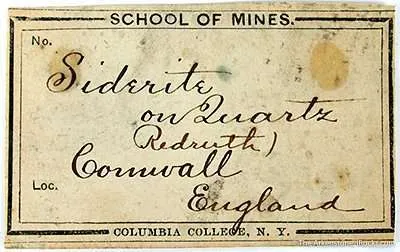 SCHOOL OF MINES.
No.
Siderite
on Quartz
Redruth)
Cornwall
Loc.
England
COLUMBIA COLLEGE, N. Y.